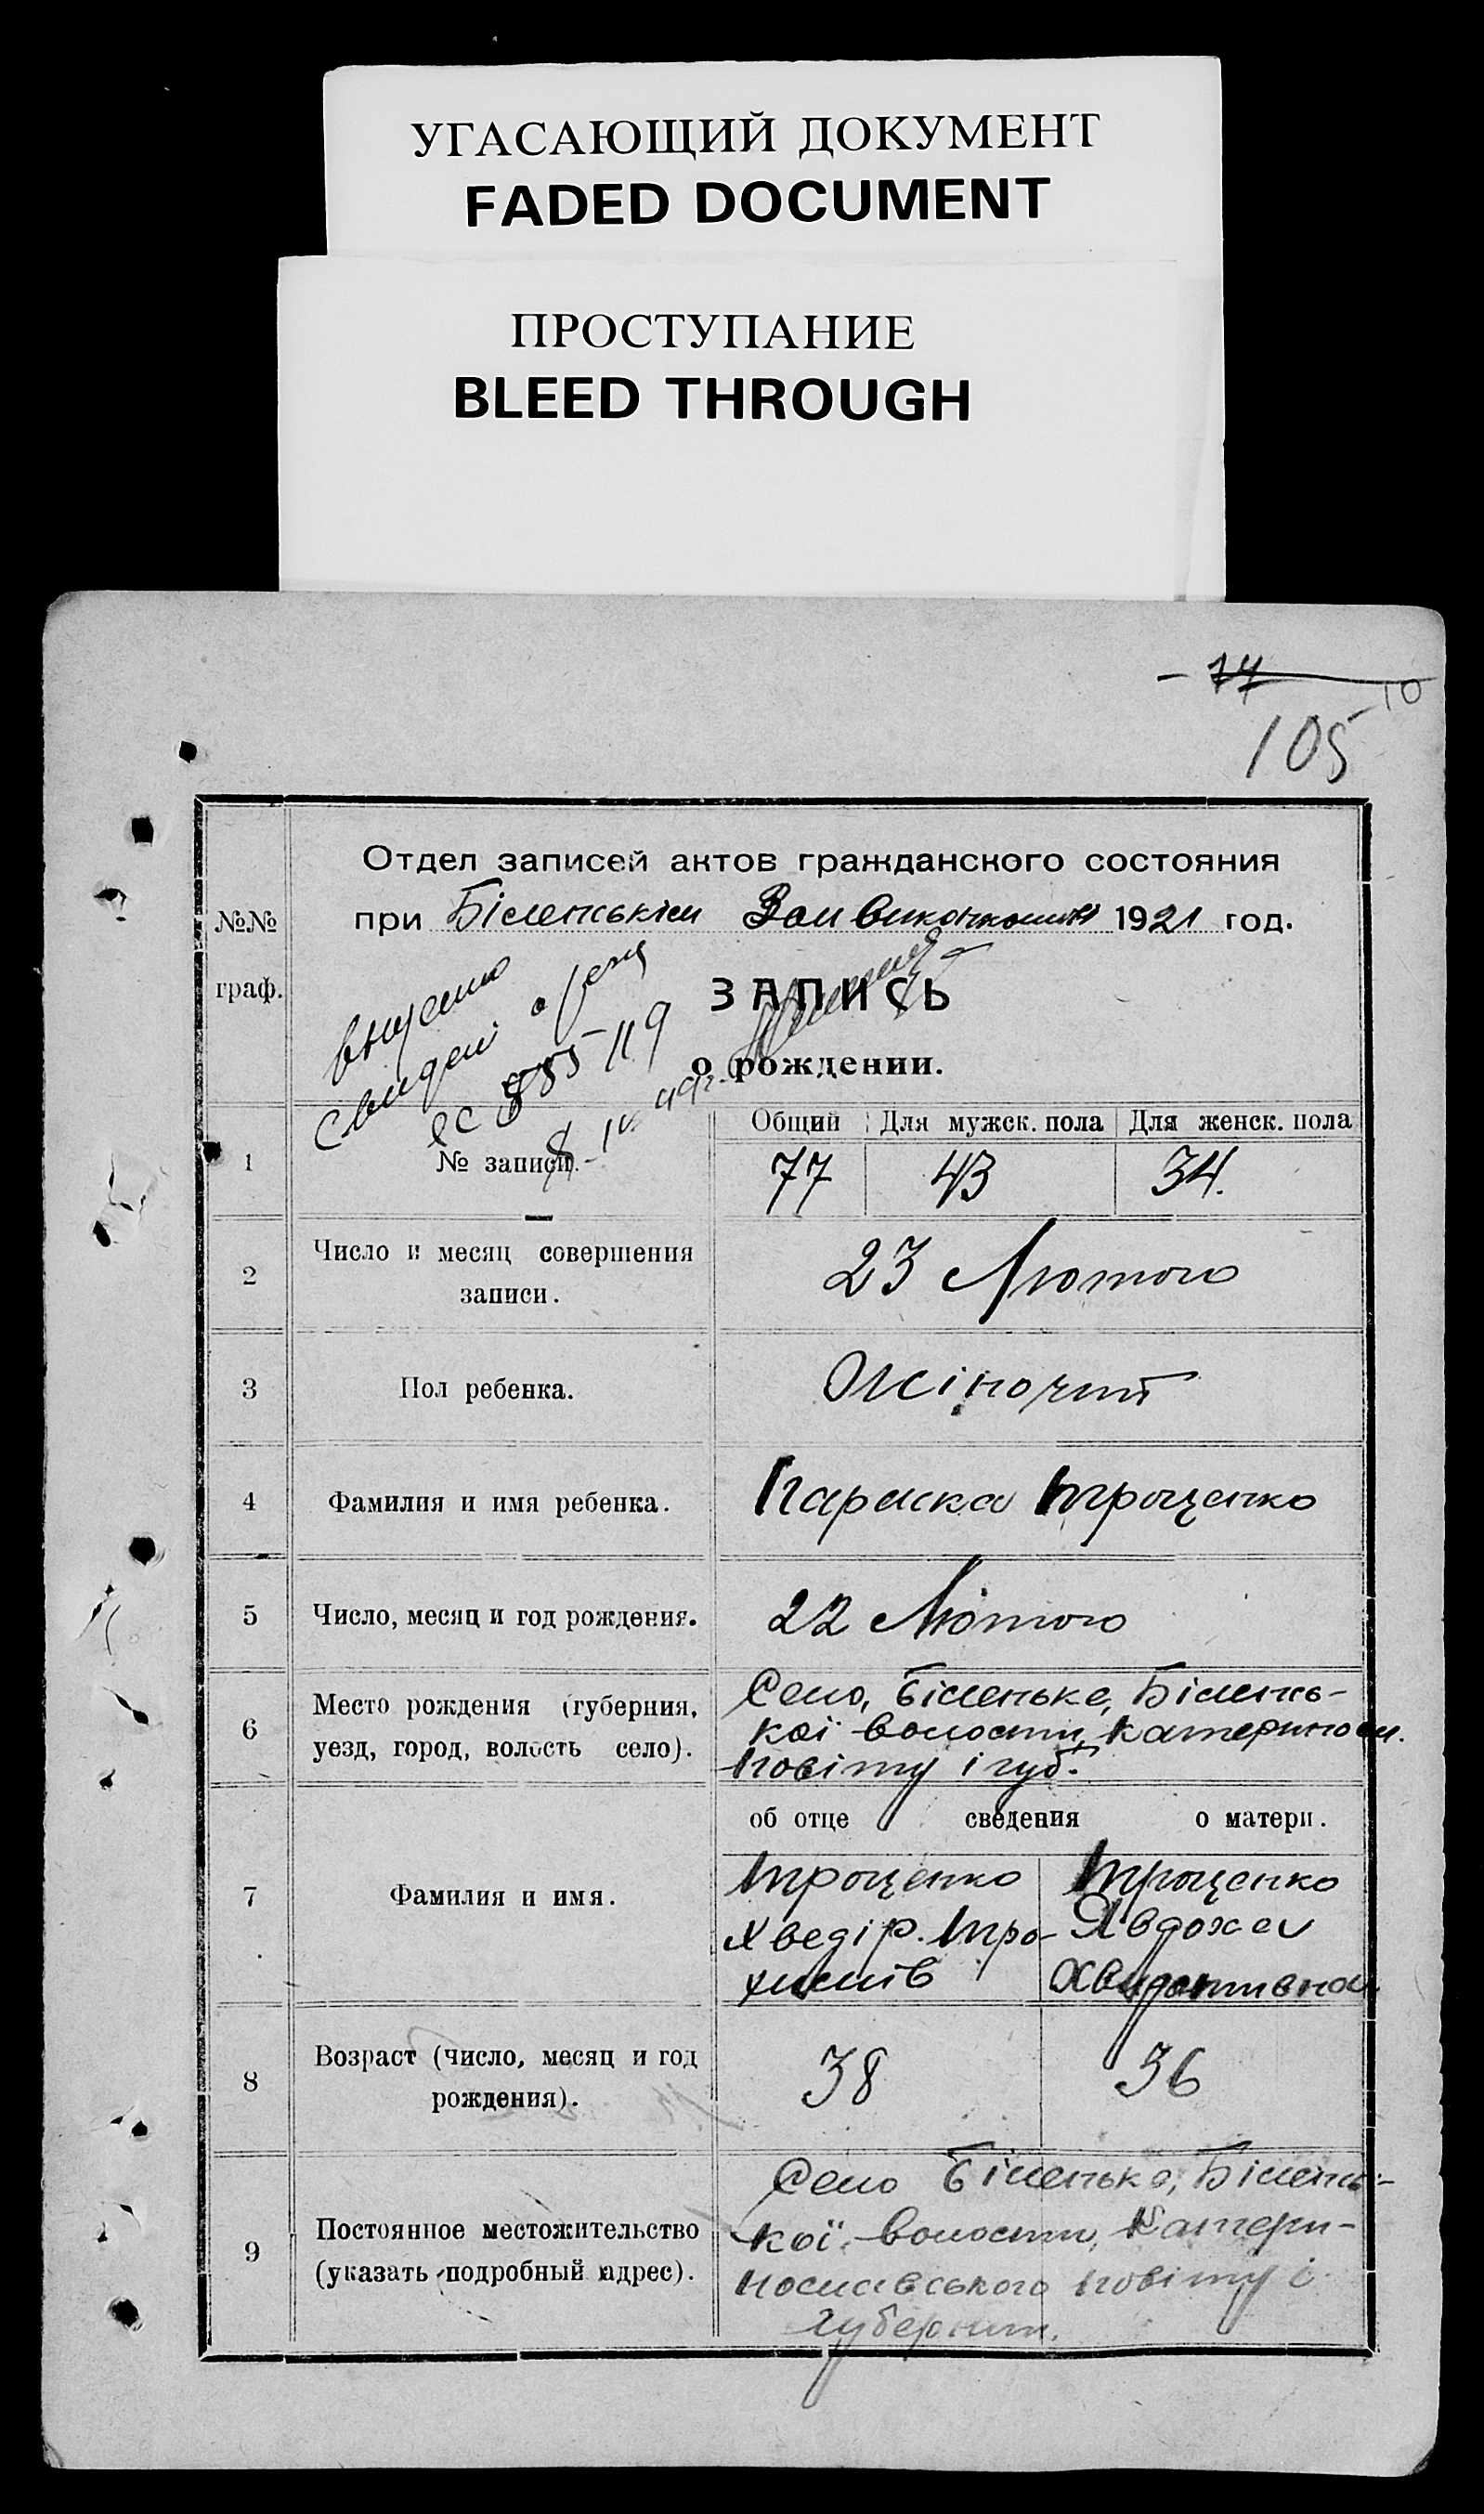 УГАСАЮЩИЙ ДОКУМЕНТ
FADED DOCUMENT
ПРОСТУПАНИЕ
BLEED THROUGH
- 14
10
105
Отдел записей актов гражданского состояния
№№ граф.
при Біленькім Вол Виконкомі 1921 год.
ЗАПИСЬ
о рождении.
свидет о
885119
Общий Для мужск. пола Для женск. пола
1 № записи. 77 43 34.
2 Число и месяц совершения
записи. 23 Лютого
3 Пол ребенка. Жіночий
4 Фамилия и имя ребенка. Параска Трощенко
5 Число, месяц и год рождения. 22 Лютого
6 Место рождения (губерния,
уезд, город, волость село).
Село, Біленьке, Білень-
кої волости, Катериносл.
Повіту і губ.
об отце сведения о матери.
7 Фамилия и имя.
Трощенко
Хведір. Тро-
химів
Трощенко
Явдоха
8 Возраст (число, месяц и год
рождения). 38 36
9 Постоянное местожительство
(указать подробный адрес).
Село Біленьке, Білень-
кої волости, Катери-
нославського повіту і
губернии.